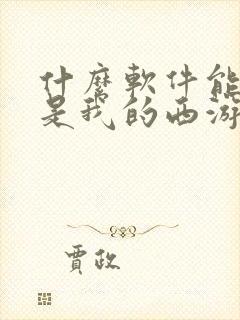 什麼軟件能
是我的西游
賈政